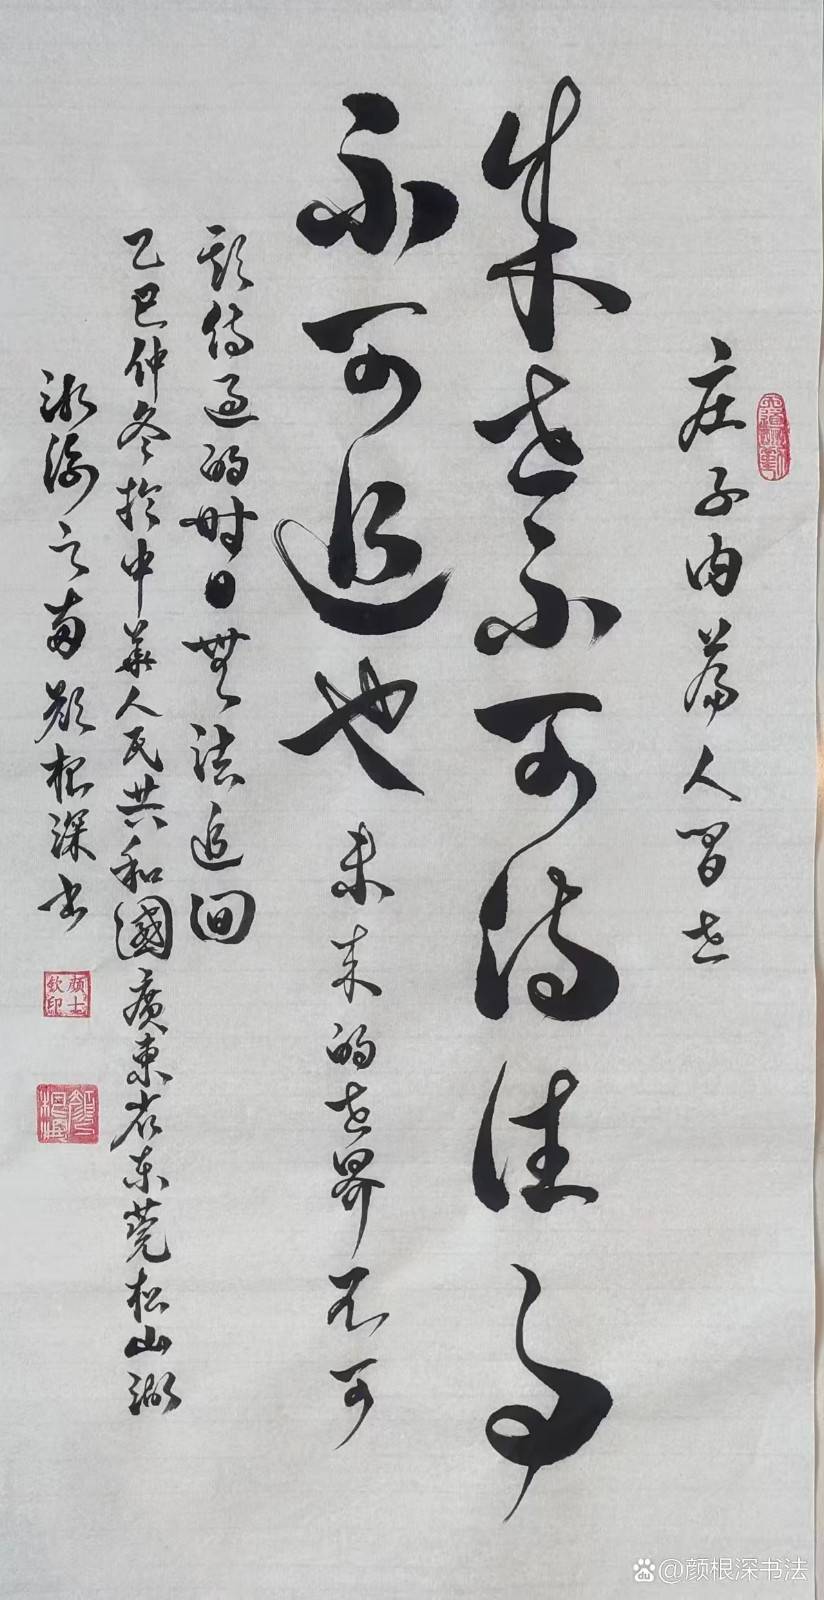 庄子内篇人間世
来世不可待往事
不可追也未来的世界不可
期待过的时日無法追回
乙巳仲冬於中華人民共和國廣東省东莞松山湖
之南颜根深书
顏士欽印
@颜根深书法